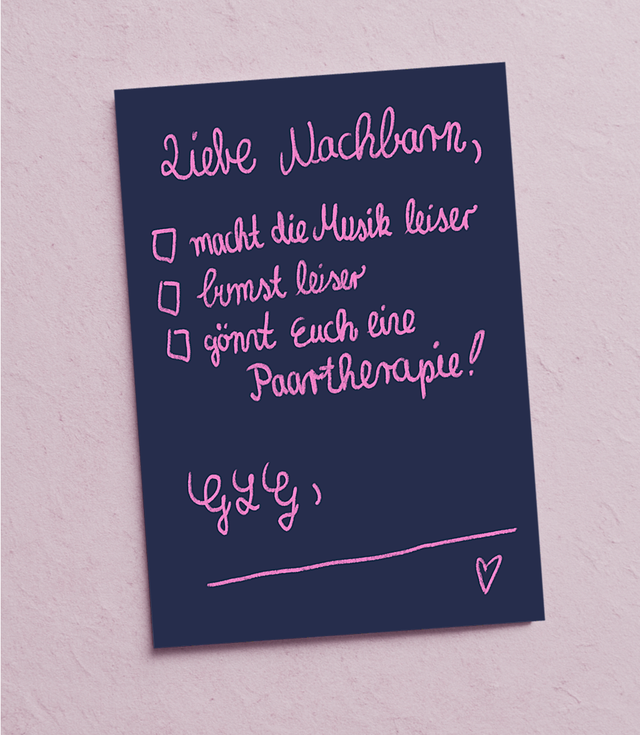 Liebe Nachbarn,
macht die Musik leiser
bumst leiser
gönnt Euch eine
Paartherapie!
GLG,